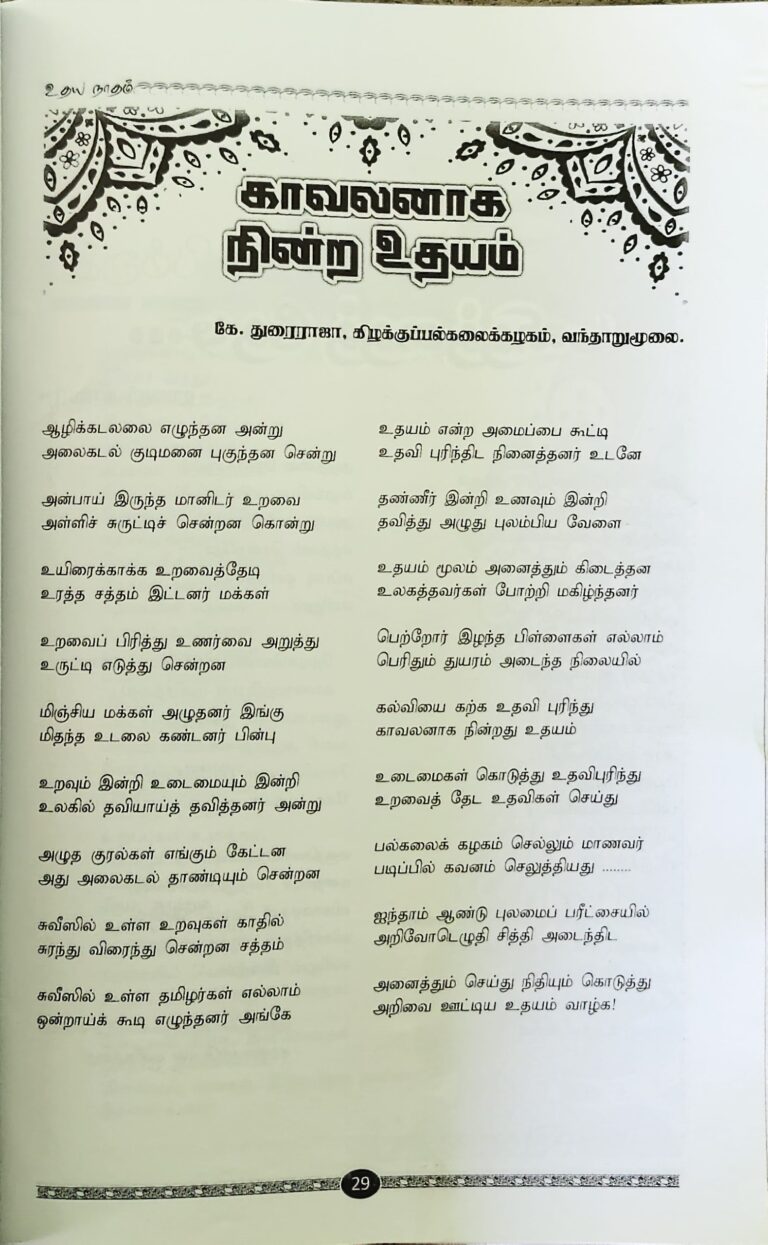 உதய நாதம்
காவலனாக
நின்ற உதயம்
கே. துரைராஜா, கிழக்குப்பல்கலைக்கழகம், வந்தாறுமூலை.
ஆழிக்கடலலை எழுந்தன அன்று
அலைகடல் குடிமனை புகுந்தன சென்று
அன்பாய் இருந்த மானிடர் உறவை
அள்ளிச் சுருட்டிச் சென்றன கொன்று
உயிரைக்காக்க உறவைத்தேடி
உரத்த சத்தம் இட்டனர் மக்கள்
உறவைப் பிரித்து உணர்வை அறுத்து
உருட்டி எடுத்து சென்றன
மிஞ்சிய மக்கள் அழுதனர் இங்கு
மிதந்த உடலை கண்டனர் பின்பு
உறவும் இன்றி உடைமையும் இன்றி
உலகில் தவியாய்த் தவித்தனர் அன்று
அழுத குரல்கள் எங்கும் கேட்டன
அது அலைகடல் தாண்டியும் சென்றன
சுவீஸில் உள்ள உறவுகள் காதில்
சுரந்து விரைந்து சென்றன சத்தம்
சுவீஸில் உள்ள தமிழர்கள் எல்லாம்
ஒன்றாய்க் கூடி எழுந்தனர் அங்கே
உதயம் என்ற அமைப்பை கூட்டி
உதவி புரிந்திட நினைத்தனர் உடனே
தண்ணீர் இன்றி உணவும் இன்றி
தவித்து அழுது புலம்பிய வேளை
உதயம் மூலம் அனைத்தும் கிடைத்தன
உலகத்தவர்கள் போற்றி மகிழ்ந்தனர்
பெற்றோர் இழந்த பிள்ளைகள் எல்லாம்
பெரிதும் துயரம் அடைந்த நிலையில்
கல்வியை கற்க உதவி புரிந்து
காவலனாக நின்றது உதயம்
உடைமைகள் கொடுத்து உதவிபுரிந்து
உறவைத் தேட உதவிகள் செய்து
பல்கலைக் கழகம் செல்லும் மாணவர்
படிப்பில் கவனம் செலுத்தியது ........
ஐந்தாம் ஆண்டு புலமைப் பரீட்சையில்
அறிவோடெழுதி சித்தி அடைந்திட
அனைத்தும் செய்து நிதியும் கொடுத்து
அறிவை ஊட்டிய உதயம் வாழ்க!
29